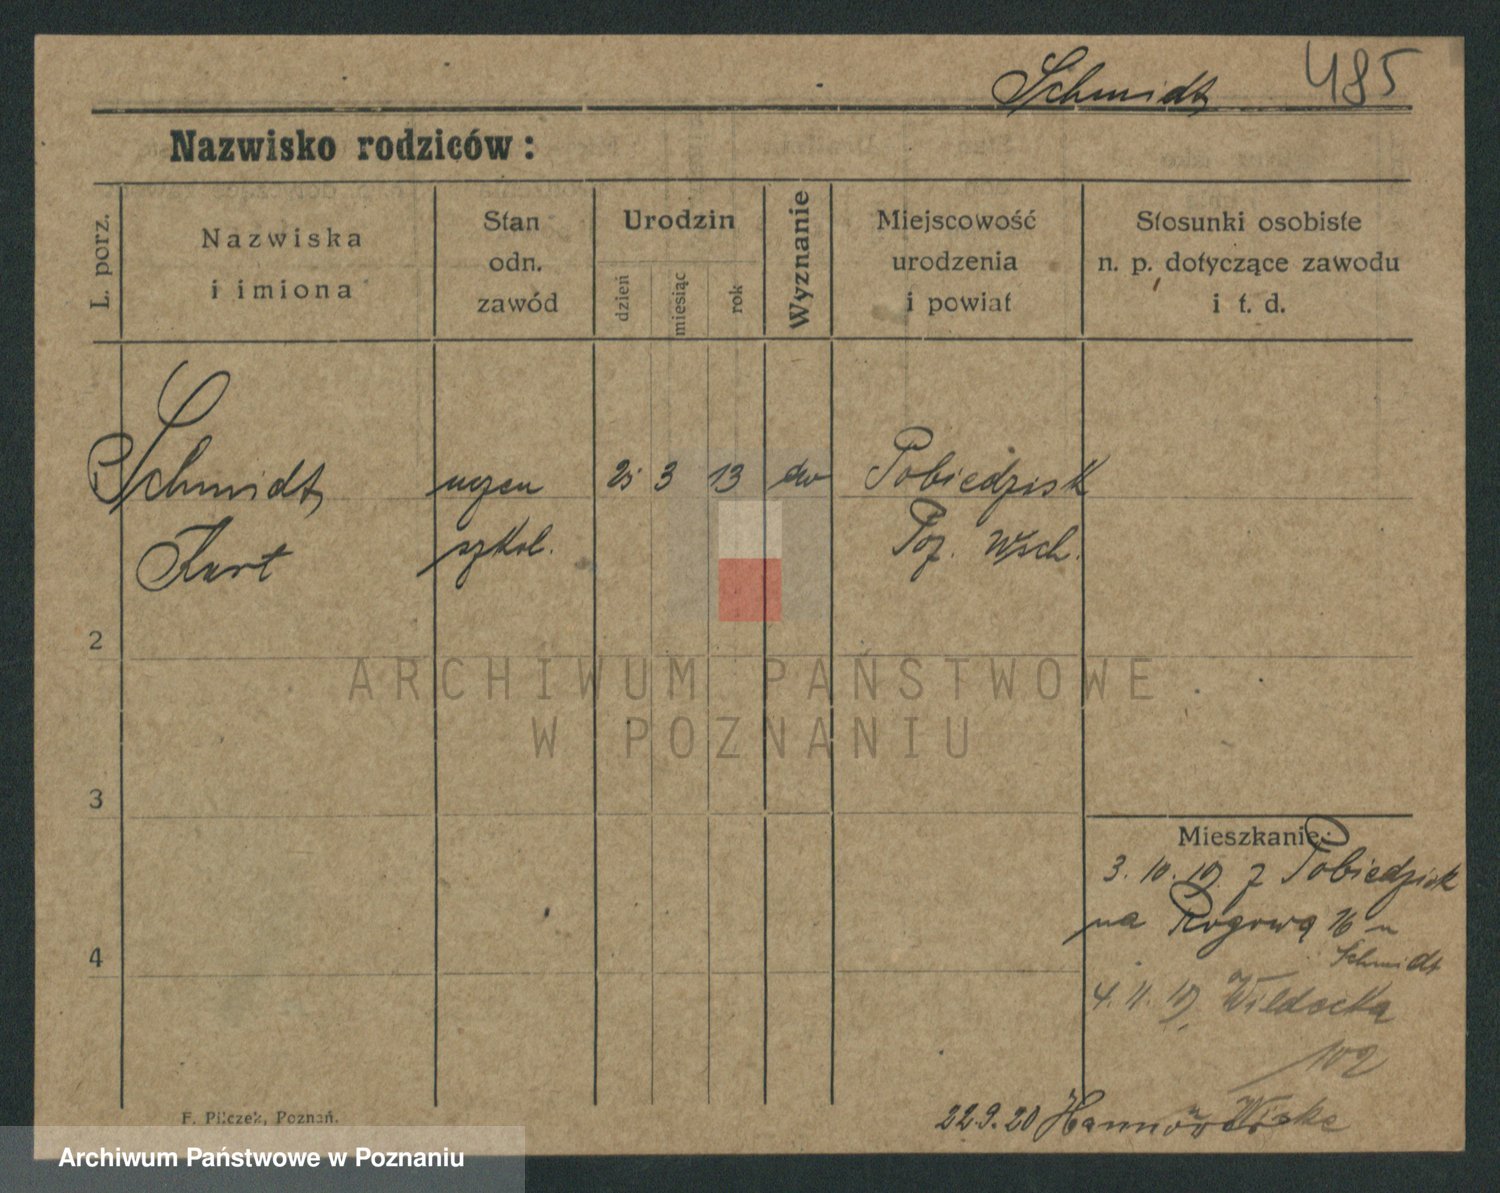 Schmidt 485
Nazwisko rodziców :
L. porz.
Nazwiska
i imiona
Stan
odn.
zawód
Urodzin
dzień
miesiąc
rok
Wyznanie
Miejscowość
urodzenia
i powiat
Stosunki osobiste
n. p. dotyczące zawodu
i t. d.
Schmidt uczeń 3 13 ew Pobiedzisk
Kurt szkol. Poz. Wsch.
2
3
4
ARCHIWUM PAŃSTWOWE
W POZNANIU
Mieszkanie:
3. 10. 19. z Pobiedzisk
na Rogową 16 u
Schmidt
4. 11. 19, Wildecka
102
22.9.20 Hannover
F. Pilczek, Poznań.
Archiwum Państwowe w Poznaniu